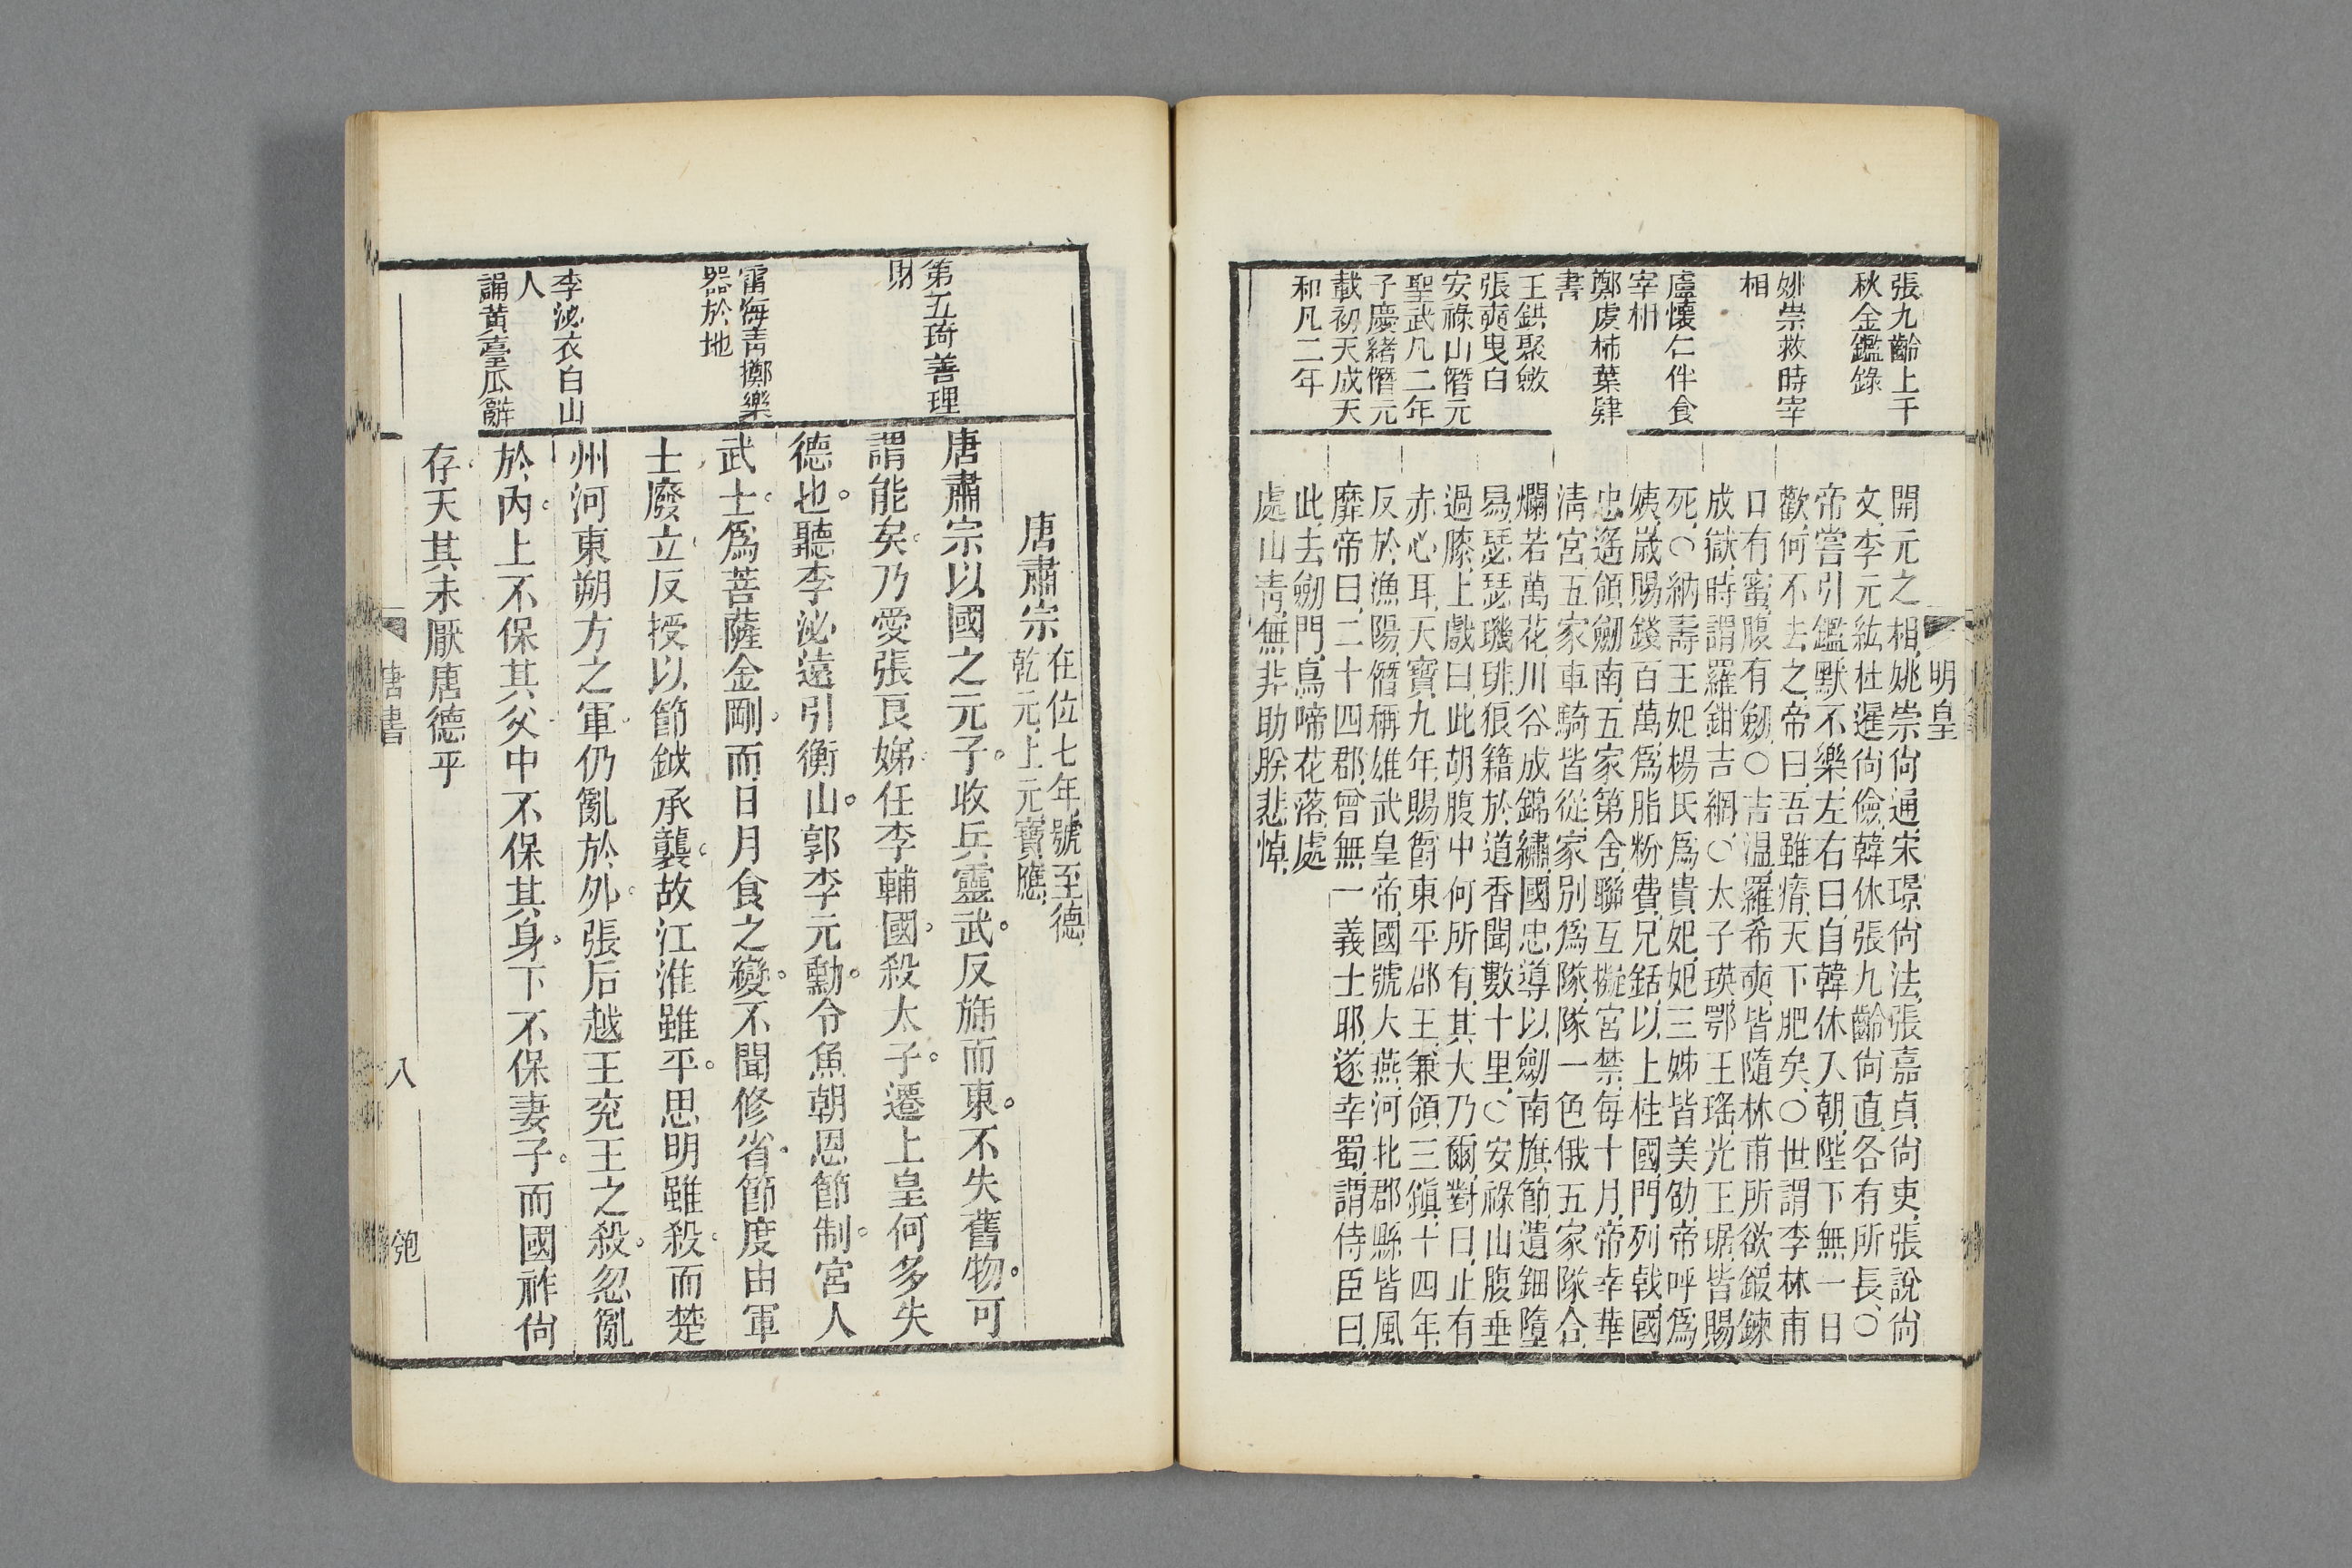 明皇
張九齡上千
秋金鑑錄
姚崇救時宰
相
盧懷仁伴食
宰相
鄭虔柿葉肄
書
王鉷聚斂
張奭曳白
安祿山僭元
聖武凡二年
子慶緒僭元
載初天成天
和凡二年
開元之相姚崇尙通宋璟尙法張嘉貞尙吏張說尙
文李元紘杜暹尙儉韓休張九齡尙直各有所長○
帝嘗引鑑默不樂左右曰自韓休入朝陛下無一日
歡何不去之帝曰吾雖瘠天下肥矣○世謂李林甫
口有蜜腹有劒○吉溫羅希奭皆隨林甫所欲鍛鍊
成獄時謂羅鉗吉網○太子瑛鄂王瑤光王琚皆賜
死○納壽王妃楊氏爲貴妃妃三姊皆美劭帝呼爲
姨歲賜錢百萬爲脂粉費兄銛以上柱國門列戟國
忠遙領劒南五家第舍聯互擬宮禁每十月帝幸華
淸宮五家車騎皆從家別爲隊隊一色俄五家隊合
爛若萬花川谷成錦繡國忠導以劒南旗節遺鈿墮
舄瑟瑟璣琲狼籍於道香聞數十里○安祿山腹垂
過膝上戲曰此胡腹中何所有其大乃爾對曰止有
赤心耳天寶九年賜爵東平郡王兼領三鎭十四年
反於漁陽僭稱雄武皇帝國號大燕河北郡縣皆風
靡帝曰二十四郡曾無一義士耶遂幸蜀謂侍臣曰
此去劒門鳥啼花落處
處山靑無非助朕悲悼
第五琦善理
財
雷海青擲樂
器於地
李泌衣白山
人
誦黄臺瓜辭
唐肅宗
在位七年號至德
乾元上元寶應
唐肅宗以國之元子。收兵靈武。反旆而東。不失舊物。可
謂能矣。乃愛張良娣。任李輔國。殺太子。遷上皇何多失
德也。聽李泌遠引衡山。郭李元勳。令魚朝恩節制。宮人
武士。爲菩薩金剛。而日月食之變。不聞修省。節度由軍
士廢立。反授以節鉞承襲。故江淮雖平。思明雖殺。而楚
州河東朔方之軍。仍亂於外。張后越王兖王之殺。忽亂
於內。上不保其父。中不保其身。下不保妻子。而國祚尙
存。天其未厭唐德乎
唐書
八